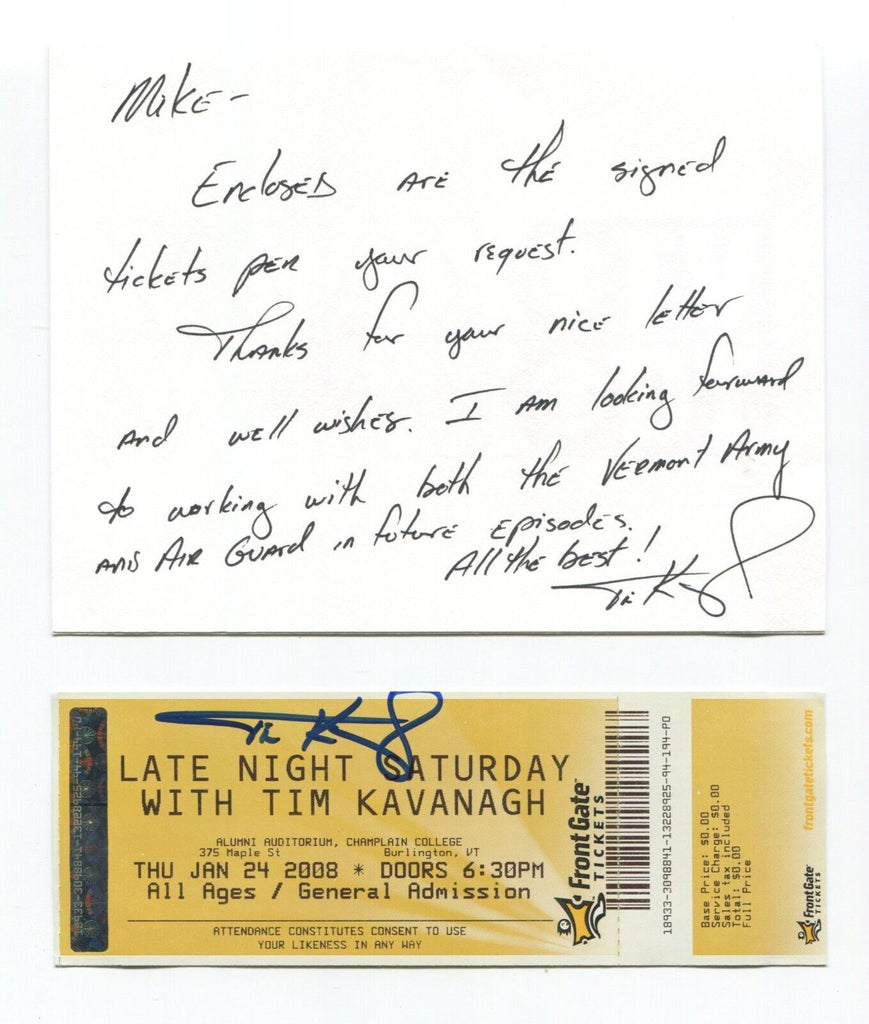 Mike -
Enclosed are the signed
tickets per your request.
Thanks for your nice letter
and well wishes. I am looking forward
to working with both the Vermont Army
and Air Guard in future episodes.
All the best!
LATE NIGHT SATURDAY
WITH TIM KAVANAGH
ALUMNI AUDITORIUM, CHAMPLAIN COLLEGE
375 Maple St Burlington, VT
THU JAN 24 2008 * DOORS 6:30PM
All Ages / General Admission
ATTENDANCE CONSTITUTES CONSENT TO USE
YOUR LIKENESS IN ANY WAY
18933-3098841-13228925-94-194-PD
FrontGate™
TICKETS
18933-3098841-13228925-94-194-PD
Base Price: $0.00
Service Charge: $0.00
Sales tax included
Total: $0.00
Full Price
frontgatetickets.com
FrontGate
TICKETS